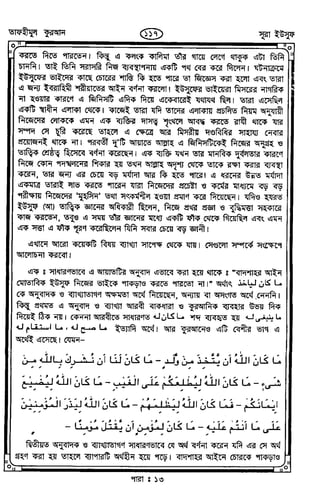 তাফহীমুল কুরআন
১১৭
সূরা ইউসুফ
করতে দিতে পারতেন। কিন্তু এ কলংক কালিমা তাঁর গায়ে লেগে থাকুক এটা তিনি
চাননি। তাই তিনি সরাসরি নিজ ব্যবস্থাপনায় একটি পথ বের করে দিলেন। ঘটনাক্রমে
ইউসুফের ভাইদের কাছে চোরের শাস্তি কি হতে পারে তা জিজ্ঞেস করা হলো এবং তারা
এ জন্য ইবরাহিমী শরীয়াতের আইন বর্ণনা করলো। ইউসুফের ভাইয়েরা মিসরের নাগরিক
না হওয়ার কারণে এ জিনিসটি এদিক দিয়ে একেবারেই যথাযথ ছিল। তারা এসেছিল
একটি স্বাধীন এলাকা থেকে। কাজেই তারা যদি তাদের এলাকায় প্রচলিত নিয়ম অনুযায়ী
নিজেদের লোককে এমন এক ব্যক্তির দাসত্ব শৃংখলে আবদ্ধ করতে রাযী থাকে যার
সম্পদ সে চুরি করেছে তাহলে এ ক্ষেত্রে আর মিসরীয় দণ্ডবিধির সাহায্য নেবার
প্রয়োজনই থাকে না। পরবর্তী দু'টি আয়াতে আল্লাহ এ জিনিসটিকেই নিজের অনুগ্রহ ও
তাত্বিক শ্রেষ্ঠত্ব হিসেবে বর্ণনা করেছেন। এক ব্যক্তি যখন তার মানবিক দুর্বলতার কারণে
নিজে কোন পদস্খলনের শিকার হয় তখন আল্লাহ অদৃশ্য থেকে তাকে রক্ষা করার ব্যবস্থা
করেন, তার জন্য এর চেয়ে বড় মর্যাদা আর কি হতে পারে। এ ধরনের উন্নত মর্যাদা
একমাত্র তারাই লাভ করতে পারেন যারা নিজেদের প্রচেষ্টা ও কর্মের মাধ্যমে বড় বড়
পরীক্ষায় নিজেদের "মুহসিন" তথা সৎকর্মশীল হওয়া প্রমাণ করে দিয়েছেন। যদিও হযরত
ইউসুফ (আ) তাত্বিক জ্ঞানের অধিকারী ছিলেন, নিজে প্রখর প্রজ্ঞা ও বুদ্ধিমত্তা সহকারে
কাজ করতেন, তবুও এ সময় তাঁর জ্ঞানের মধ্যে একটি ফাঁক থেকে গিয়েছিল এবং এমন
এক সত্তা এ ফাঁক পূরণ করেছিলেন যিনি সবার চেয়ে বড় জ্ঞানী।
এখানে আরো কয়েকটি বিষয় ব্যাখ্যা সাপেক্ষে থেকে যায়। সেগুলো সম্পর্কে সংক্ষেপে
আলোচনা করবো।
এক ঃ সাধারণভাবে এ আয়াতটির অনুবাদ এভাবে করা হয়ে থাকে ঃ "বাদশাহর আইন
মোতাবিক ইউসুফ নিজের ভাইকে পাকড়াও করতে পারতো না।" অর্থাৎ ما كان ليأخذ
কে অনুবাদক ও ব্যাখ্যাতাগণ অক্ষমতা অর্থে নিয়েছেন, অন্যায় বা অসংগত অর্থে নেননি।
কিন্তু প্রথমত এ অনুবাদ ও ব্যাখ্যা আরবী বাকধারা ও কুরআনিক ব্যবহার উভয় দিক
দিয়েই ঠিক নয়। কেননা আরবীতে সাধারণত ما كان له শব্দ ব্যবহৃত হয়
ما ينبغى له ما صح له ، ما استقام له ইত্যাদি অর্থে। আর কুরআনেও এটি বেশীর ভাগ এ
অর্থেই এসেছে। যেমন–
مَا كَانَ اللَّهُ أَنْ يَتَّخِذَ مِنْ وَلَدٍ - مَا كَانَ لَنَا أَنْ نُشْرِكَ بِاللَّهِ مِنْ
شَيْءٍ - مَا كَانَ اللَّهُ لِيُطْلِعَكُمْ عَلَى الْغَيْبِ - مَا كَانَ اللَّهُ لِيُضِيعَ
إِيمَانَكُمْ - فَمَا كَانَ اللَّهُ لِيَظْلِمَهُمْ - مَا كَانَ اللَّهُ لِيَذَرَ الْمُؤْمِنِينَ
عَلَى مَا أَنْتُمْ عَلَيْهِ - مَا كَانَ لِمُؤْمِنٍ أَنْ يَقْتُلَ مُؤْمِنًا -
দ্বিতীয়ত অনুবাদক ও ব্যাখ্যাতাগণ সাধারণভাবে যে অর্থ বর্ণনা করেন যদি এর সে অর্থ
গ্রহণ করা হয় তাহলে ব্যাপারটি অর্থহীন হয়ে পড়ে। বাদশাহর আইনে চোরকে পাকড়াও
পারা ঃ ১৩